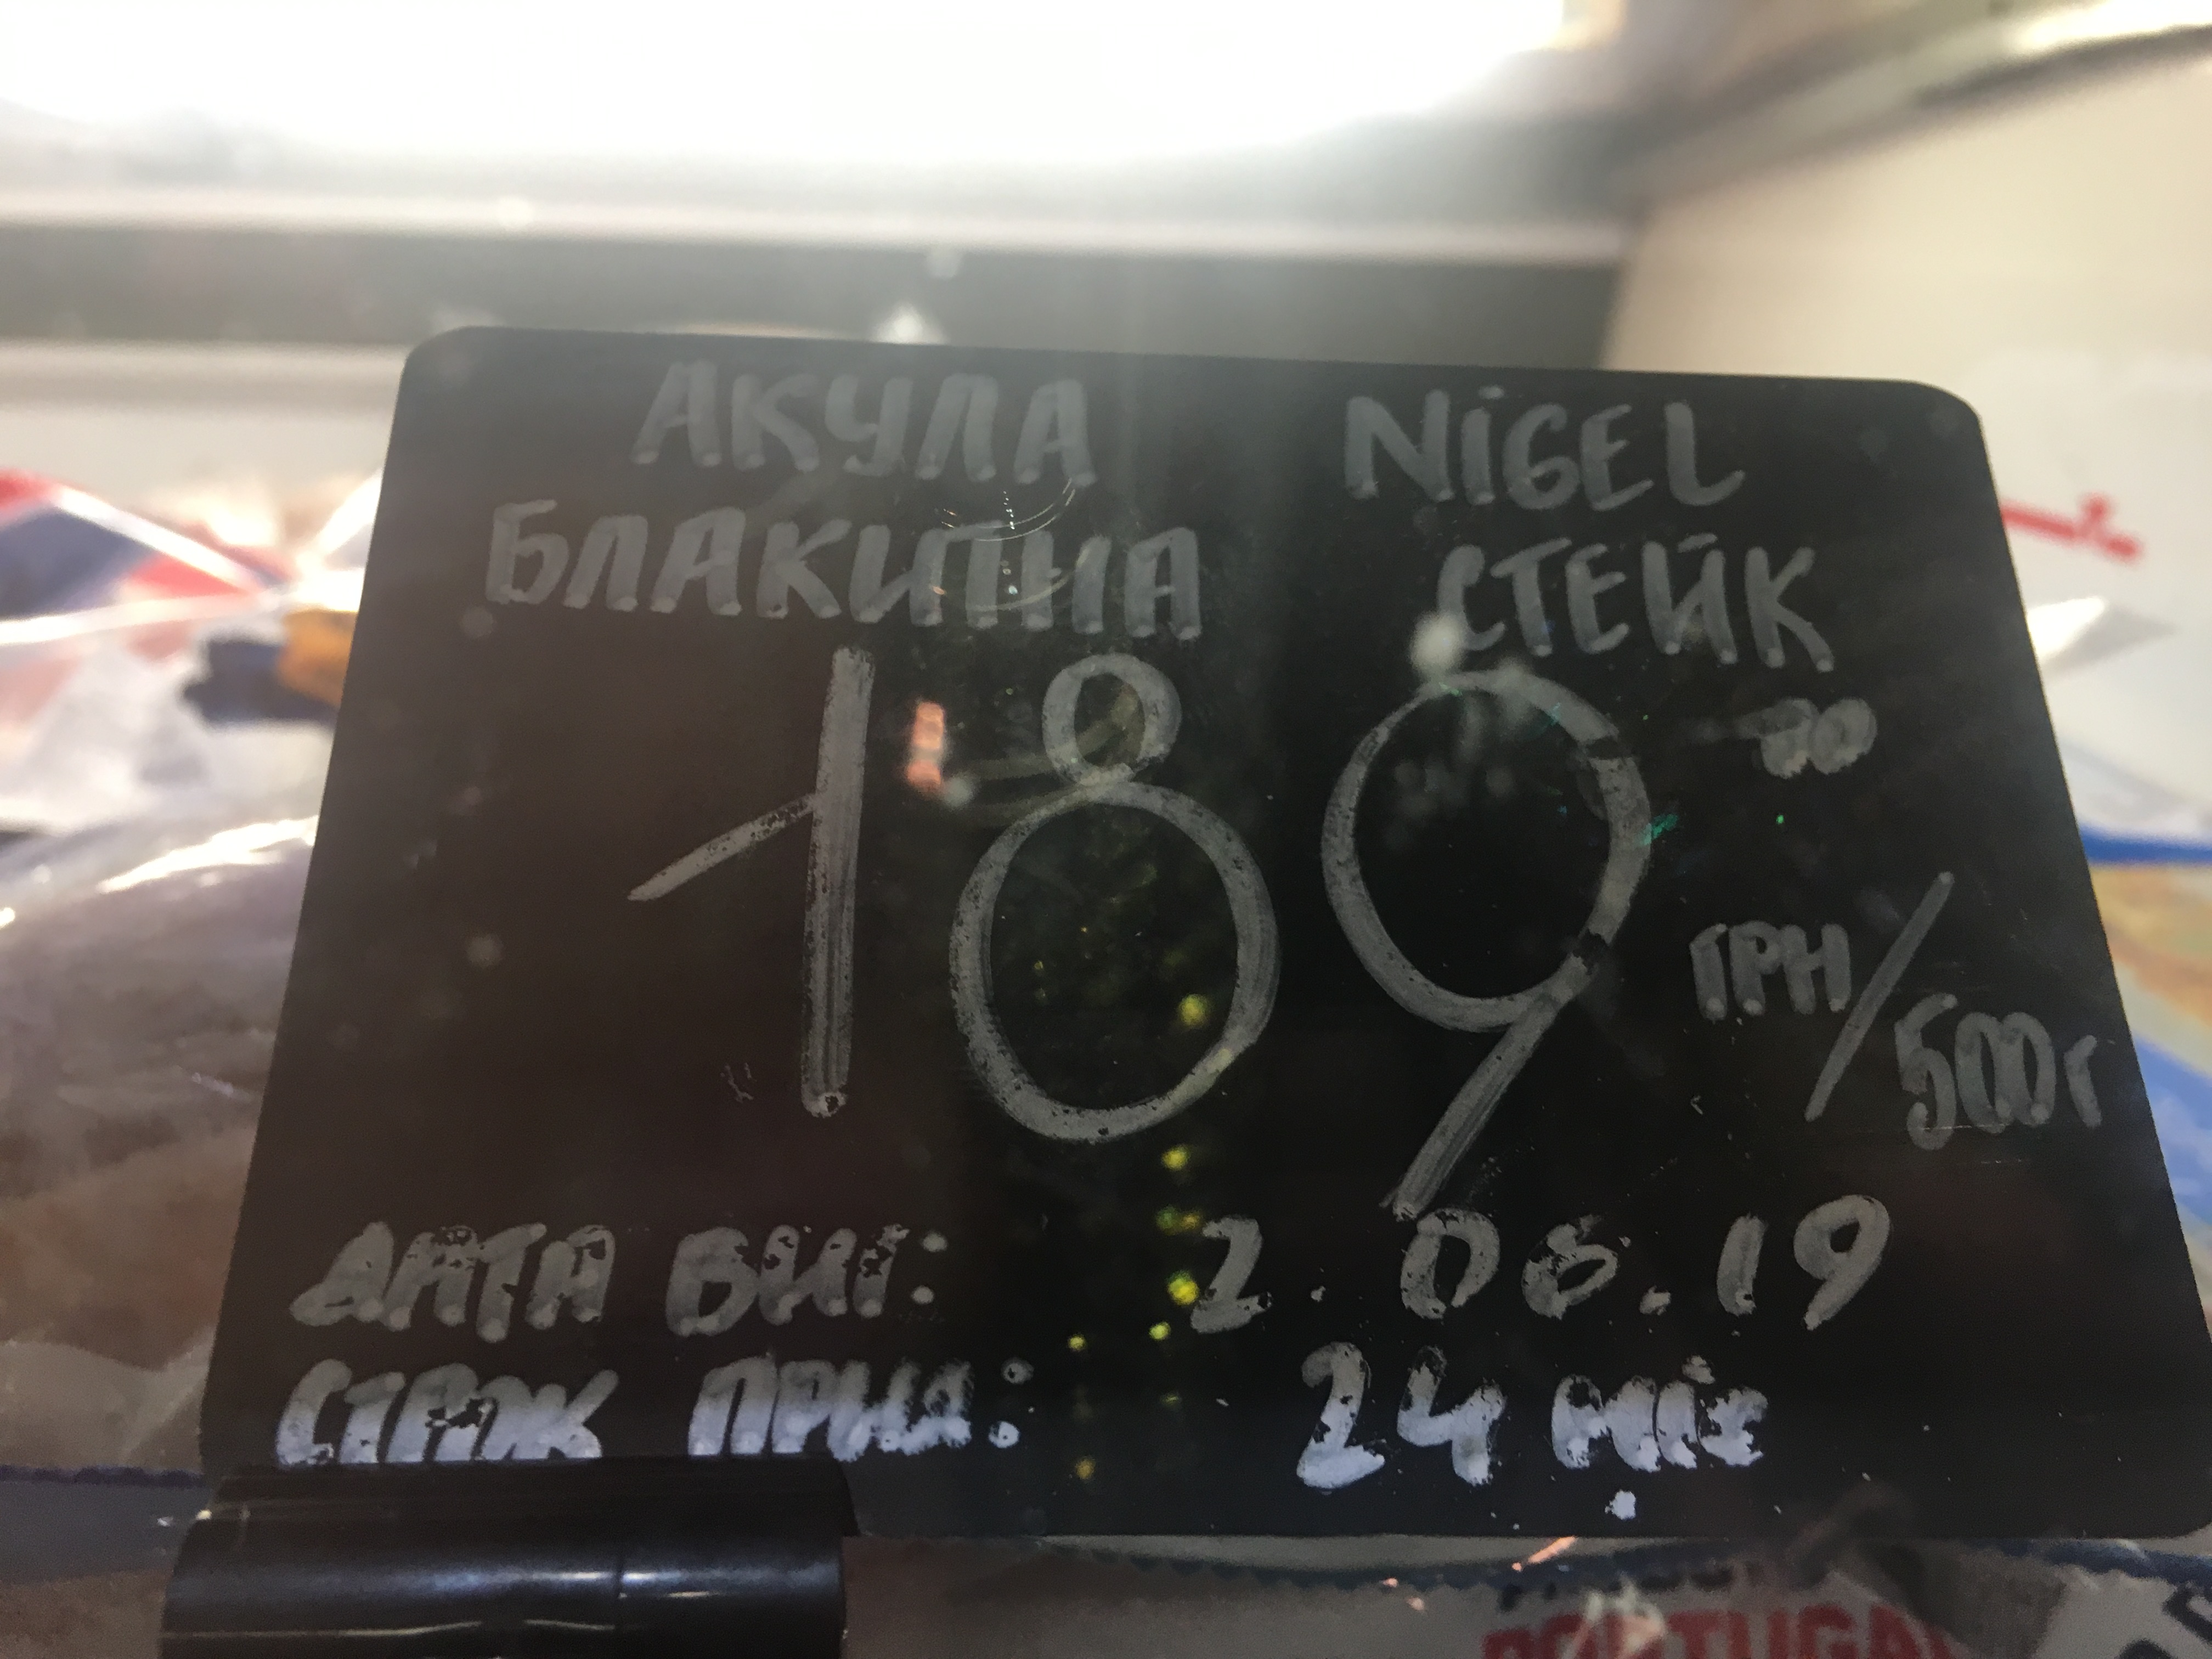 АКУЛА NiGEL
БЛАКИТНА СТЕЙК
189 00
ГРН/500г
ДАТА ВИГ: 2.06.19
СТРОК ПРИД: 24 міс
PORTUGAL